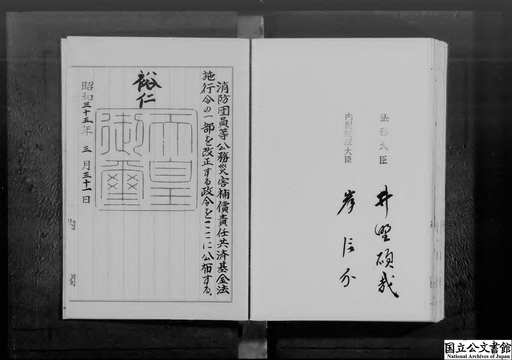 法務大臣　井野碩哉
内閣総理大臣　岸信介
消防団員等公務災害補償責任共済基金法
施行令の一部を改正する政令をここに公布する。
裕仁
天皇
御璽
昭和三十五年三月三十一日
内閣
国立公文書館
National Archives of Japan